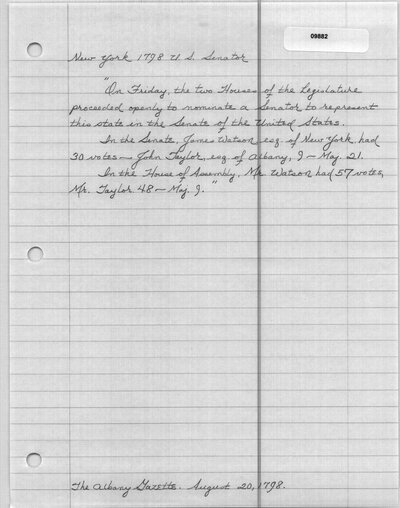 09882
New York 1798 U. S. Senator
"On Friday, the two Houses of the Legislature
proceeded openly to nominate a Senator to represent
this state in the Senate of the United States.
In the Senate, James Watson, esq. of New York, had
30 votes — John Taylor, esq. of Albany, 9 — Maj. 21.
In the House of Assembly, Mr. Watson had 57 votes,
Mr. Taylor 48 — Maj. 9."
The Albany Gazette. August 20, 1798.